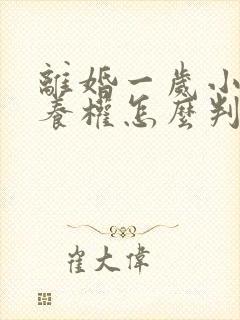 離婚一歲小
養權怎麼判
崔大偉